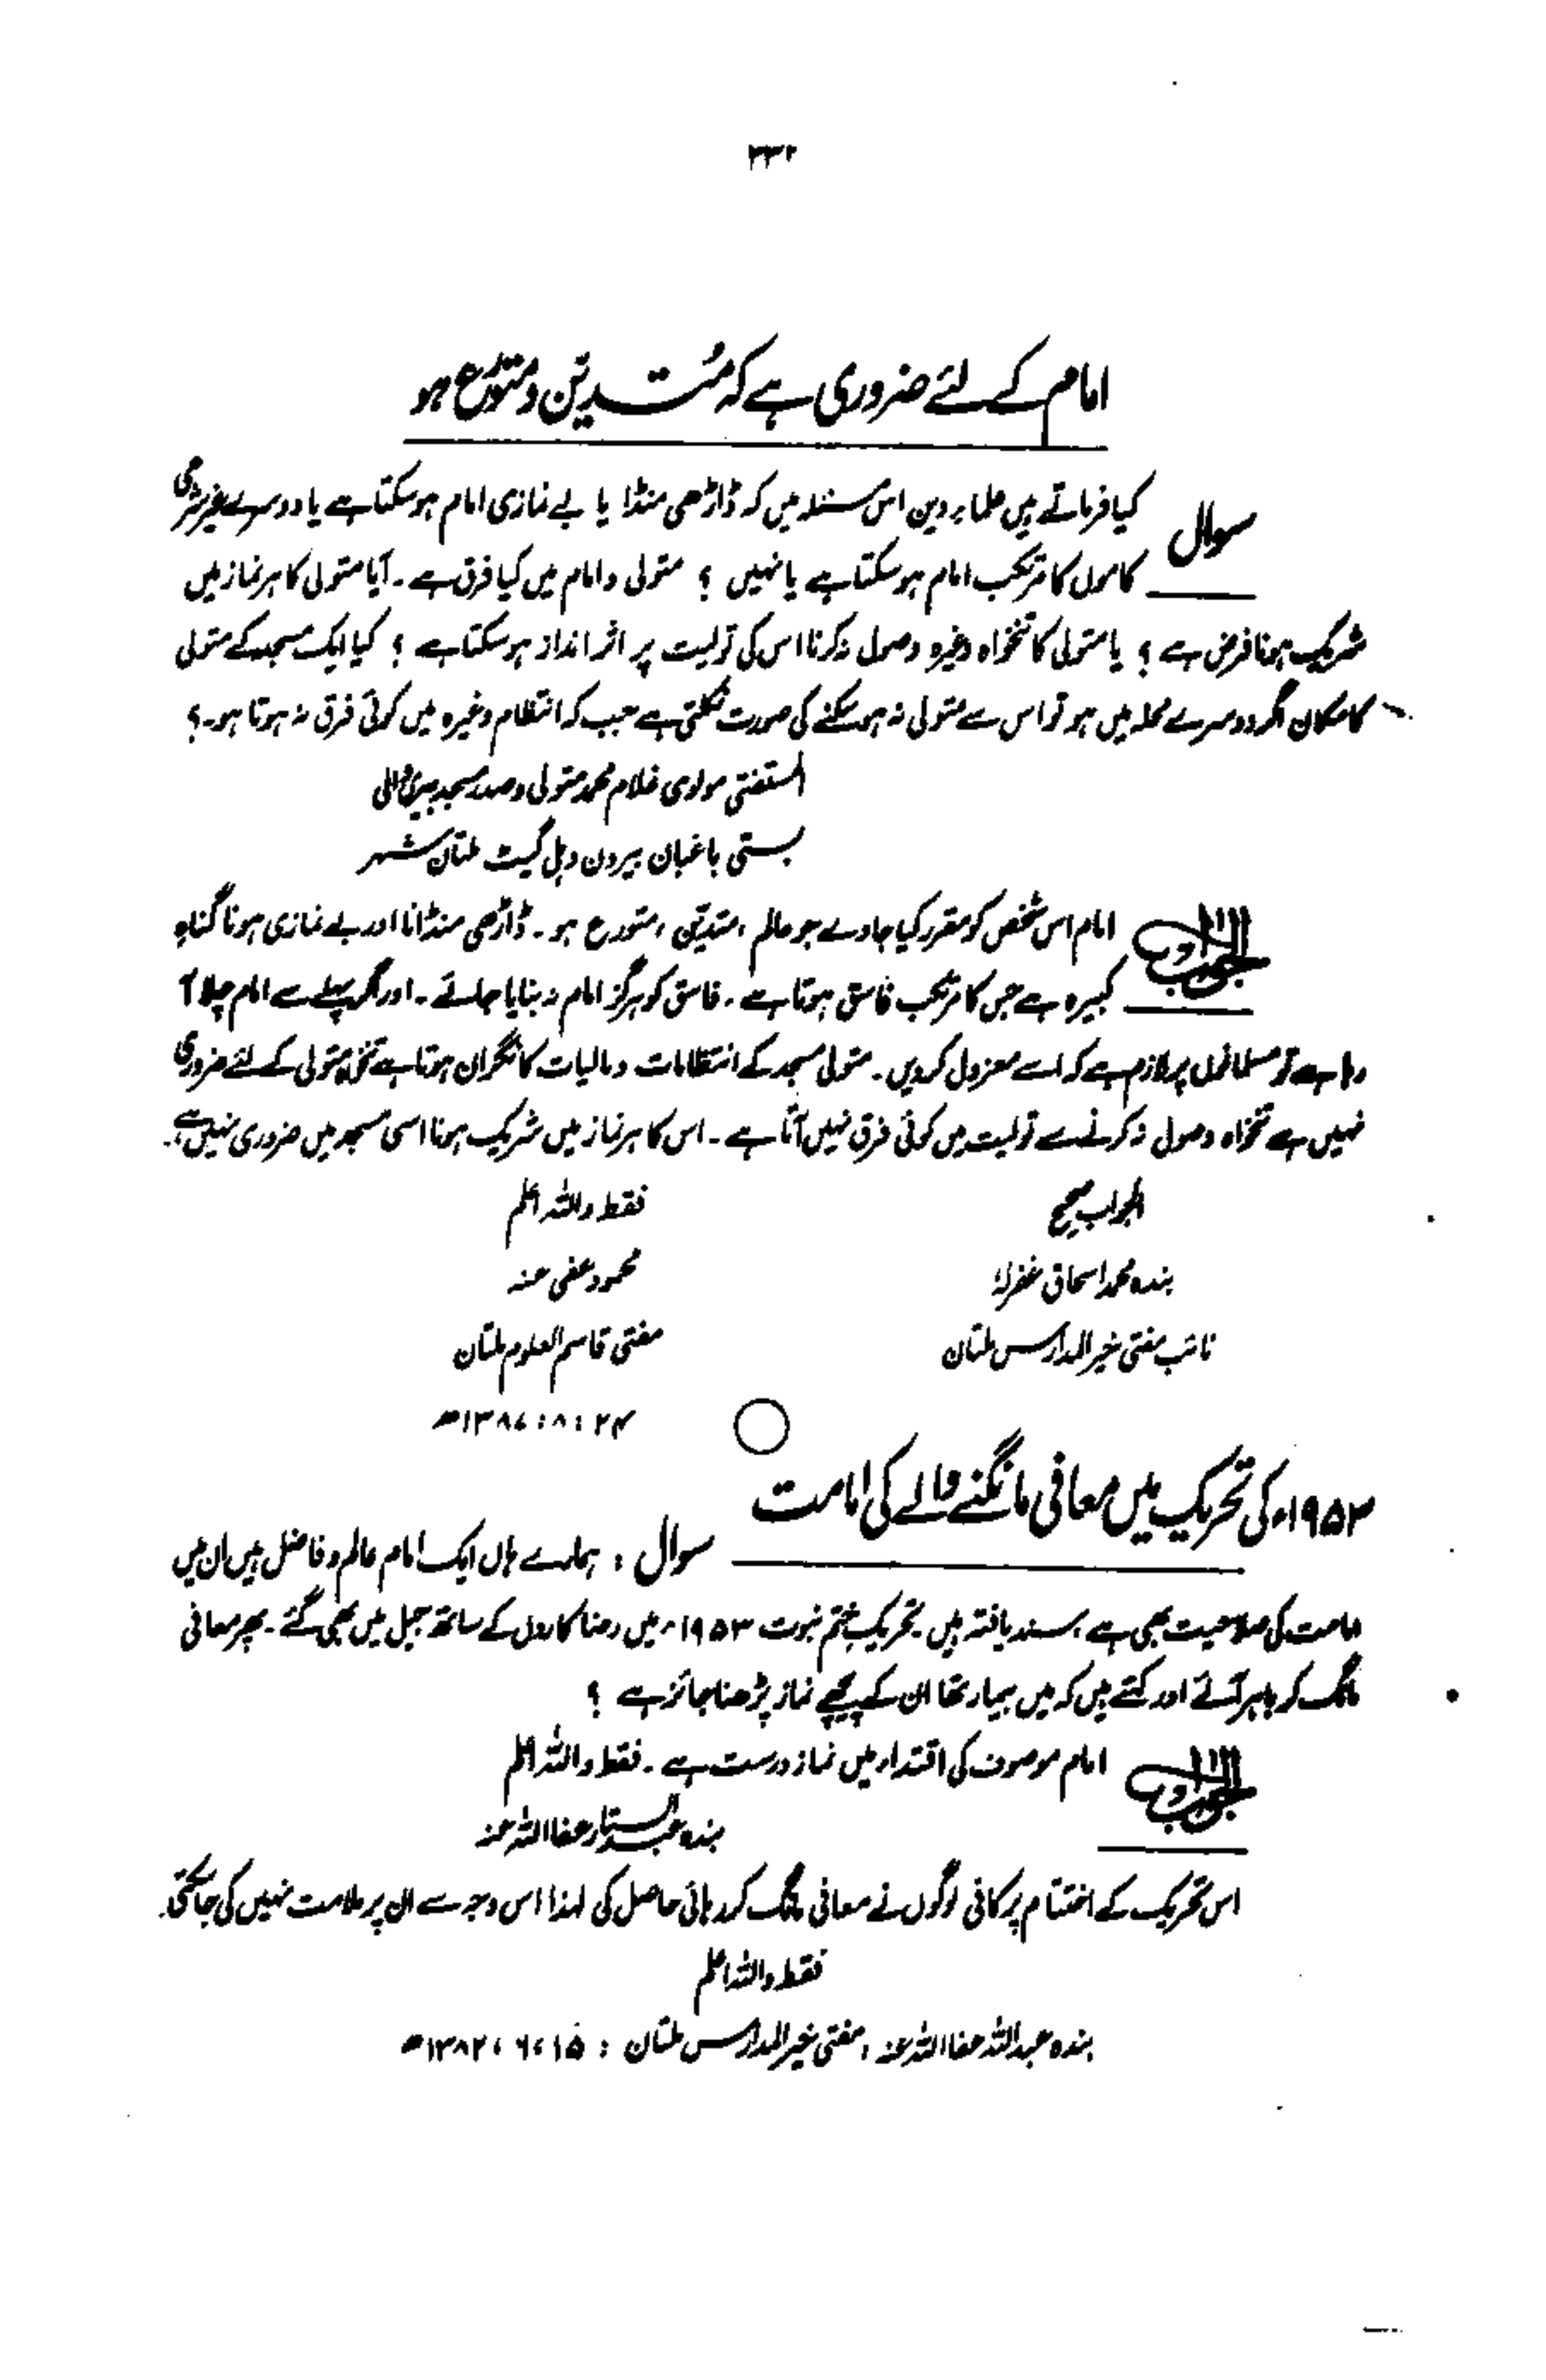 ۳۳۲
امام کے لئے ضروری ہے کہ مُتدیّن و متورّع ہو
سوال کیا فرماتے ہیں علماء دین اس مسئلہ میں کہ ڈاڑھی منڈا یا بے نمازی امام ہوسکتا ہے یا دوسرے غیر شرعی
کاموں کا مرتکب امام ہوسکتا ہے یا نہیں ؟ متولی و امام میں کیا فرق ہے ۔ آیا متولی کا ہر نماز میں
شریک ہونا فرض ہے ؟ یا متولی کا تنخواہ وغیرہ وصول نہ کرنا اس کی تولیت پر اثر انداز ہوسکتا ہے ؟ کیا ایک مسجد کے متولی
کا مکان اگر دوسرے محلہ میں ہو تو اس سے متولی نہ ہوسکنے کی صورت نکلتی ہے جب کہ انتظام وغیرہ میں کوئی فرق نہ ہوتا ہو ۔ ؟
المستفتی مولوی غلام محمد متولی و صدر مسجد
بستی باغبان بیرون دہلی گیٹ ملتان شہر
الجواب امام اس شخص کو مقرر کیا جاوے جو عالم ، متدیّن ، متورع ہو ۔ ڈاڑھی منڈانا اور بے نمازی ہونا گناہِ
کبیرہ ہے جس کا مرتکب فاسق ہوتا ہے ۔ فاسق کو ہرگز امام نہ بنایا جائے ۔ اور اگر پہلے سے امام چلا آ
رہا ہے تو مسلمانوں پر لازم ہے کہ اسے معزول کردیں ۔ متولی مسجد کے انتظامات و مالیات کا نگران ہوتا ہے تنخواہ متولی کے لئے ضروری
نہیں ہے تنخواہ وصول نہ کرنے سے تولیت میں کوئی فرق نہیں آتا ہے ۔ اس کا ہر نماز میں شریک ہونا اسی مسجد میں ضروری نہیں ہے ۔
الجواب صحیح
بندہ محمد اسحاق غفرلہ
نائب مفتی خیر المدارس ملتان
فقط واللہ اعلم
محمود عفی عنہ
مفتی قاسم العلوم ملتان
۲۴ : ۸ : ۱۳۸۷ھ
۱۹۵۳ء کی تحریک میں معافی مانگنے والے کی امامت
سوال : ہمارے ہاں ایک امام عالم و فاضل ہیں ان میں
امامت کی صلاحیت بھی ہے ، سند یافتہ ہیں تحریک ختم نبوت ۱۹۵۳ء میں رضا کاروں کے ساتھ جیل میں بھی گئے ۔ پھر معافی
مانگ کر باہر آئے اور کہتے ہیں کہ میں بیمار تھا ان کے پیچھے نماز پڑھنا جائز ہے ؟
الجواب امام موصوف کی اقتداء میں نماز درست ہے ۔ فقط واللہ اعلم
بندہ عبد الستار عفا اللہ عنہ
اس تحریک کے اختتام پر کافی لوگوں نے معافی مانگ کر رہائی حاصل کی لہٰذا اس وجہ سے ان پر ملامت نہیں کی جاسکتی ۔
فقط واللہ اعلم
بندہ عبد اللہ عفا اللہ عنہ ، مفتی خیر المدارس ملتان : ۱۵ ، ۶ ، ۱۳۸۲ھ